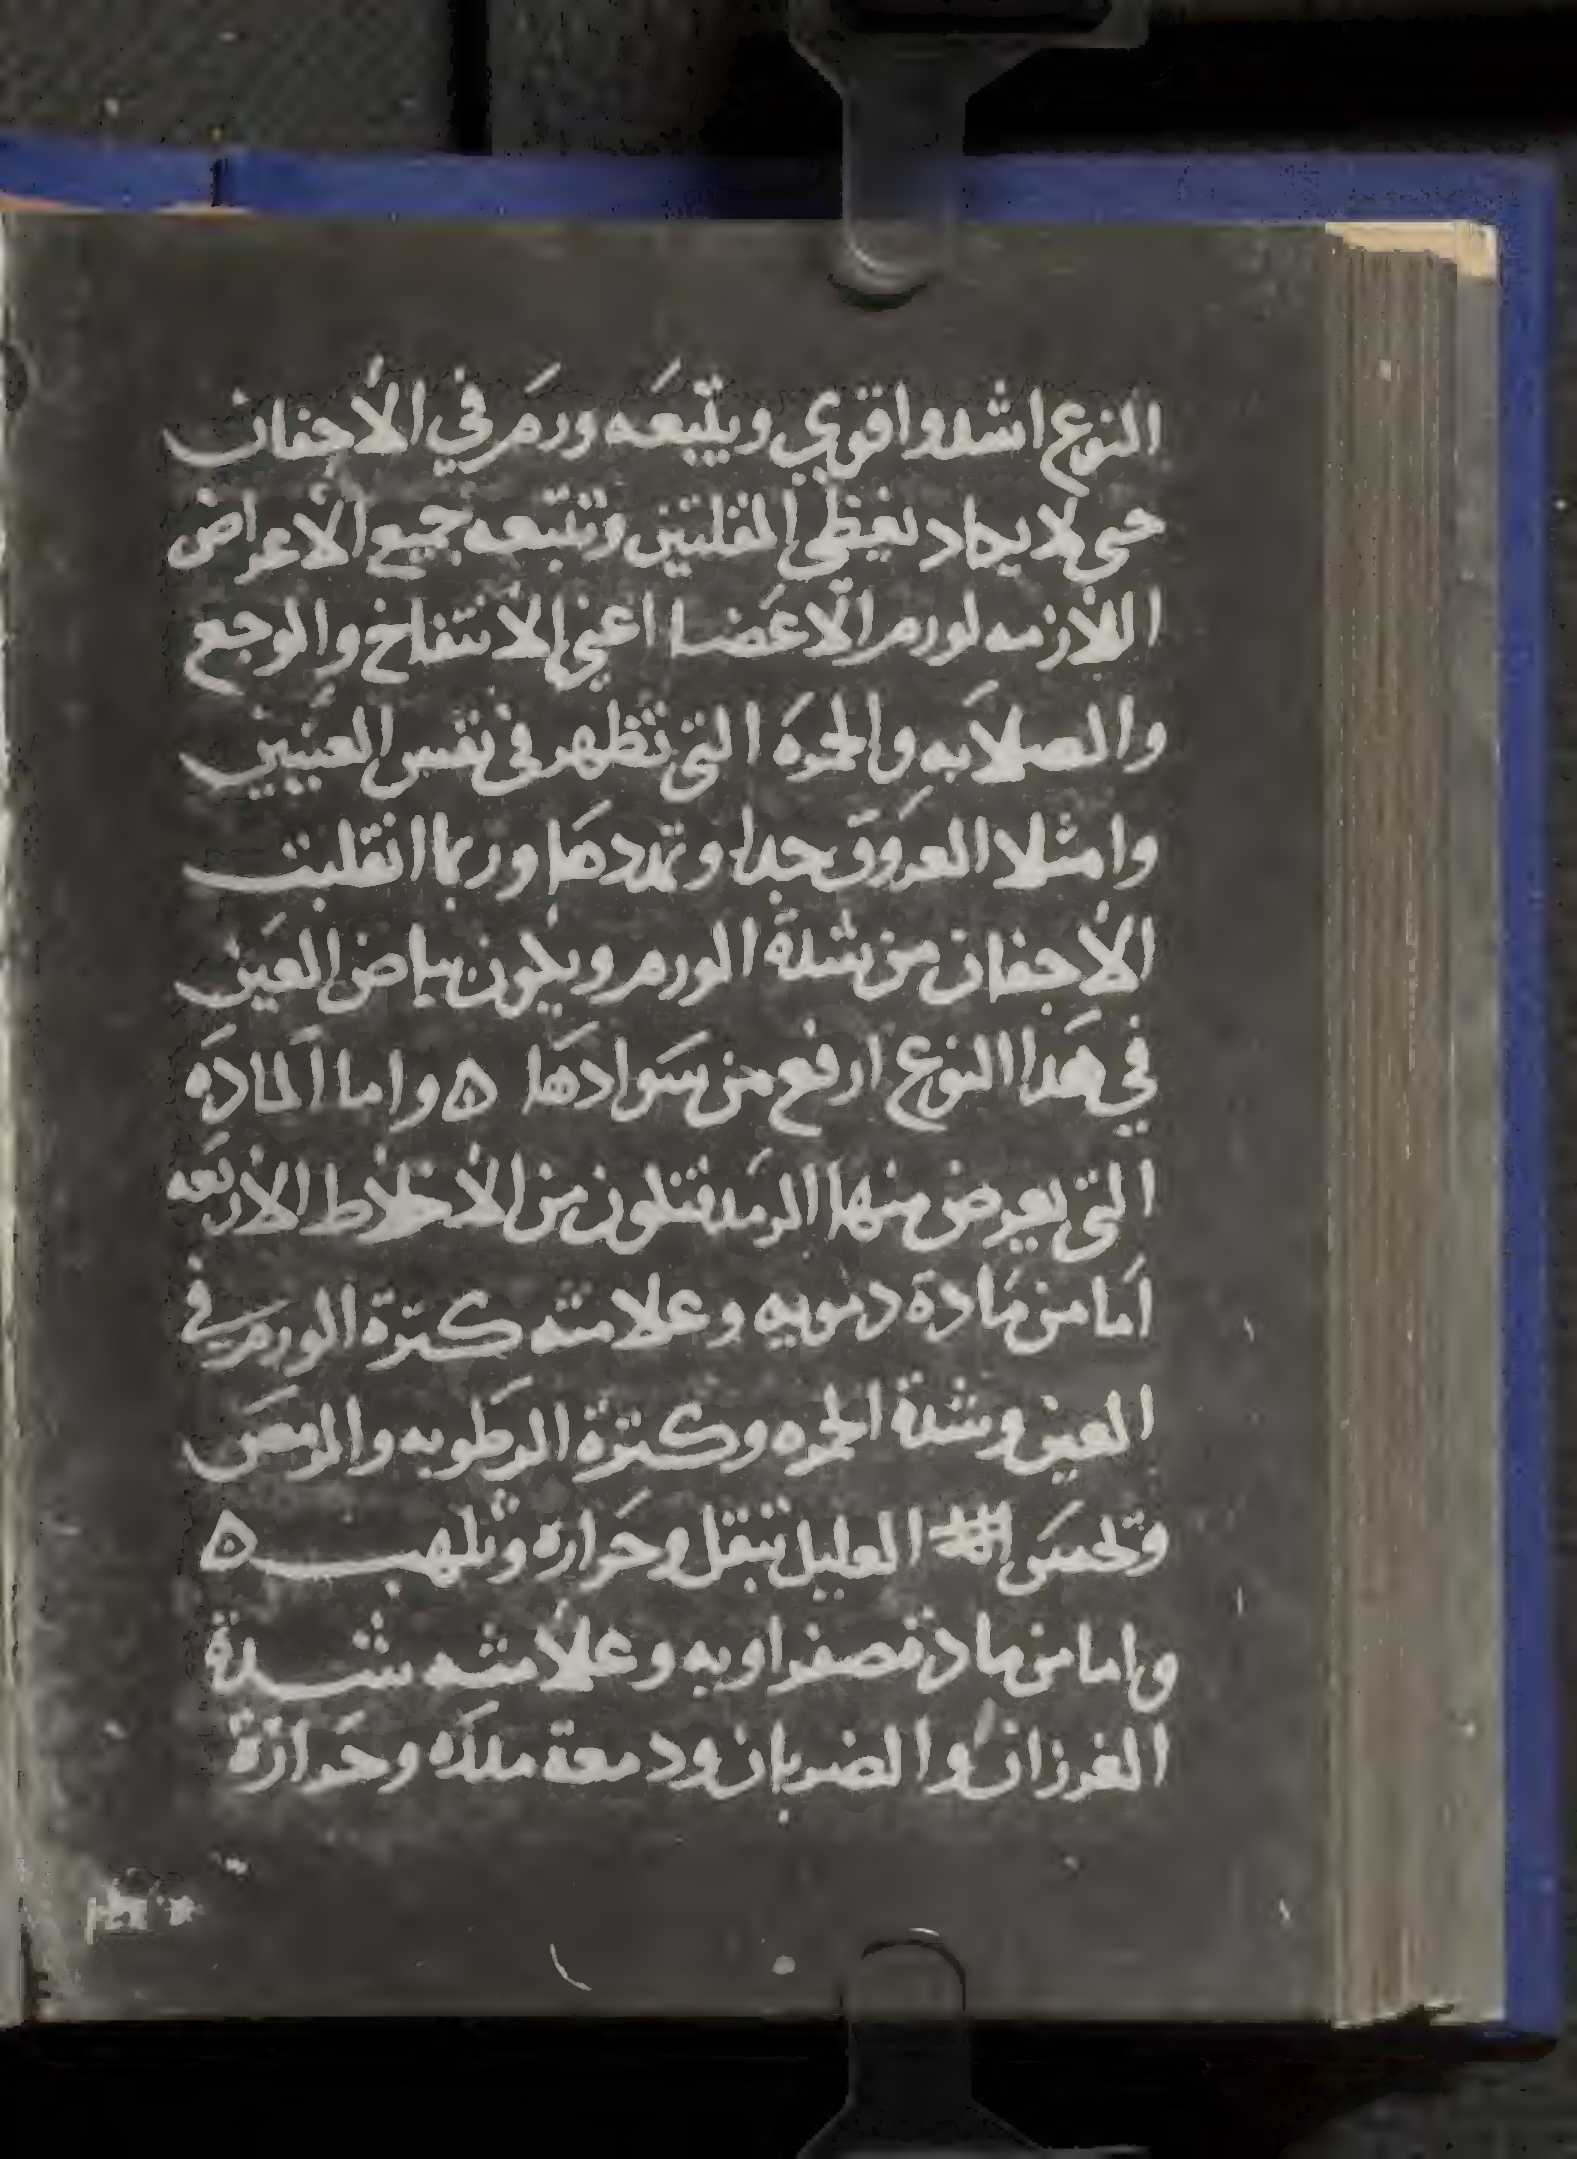 النوع اشد واقوي ويتبعه ورم في الأجفان
حتى لا يكاد يغطي المقلتين وتتبعه جميع الأعراض
اللازمه لورم الاعضا اعني الانتفاخ والوجع
والصلابه والحمره التي تظهر في نفس العينين
وامتلا العروق جدا وتمددها وربما انقلبت
الأجفان من شدة الورم ويكون بياض العين
في هدا النوع ارفع من سوادها ه واما المادة
التي يعرض منها الرمد فتكون من الأخلاط الأربعه
اما من مادة دمويه وعلامته كترة الورم في
العين وشدة الحمره وكترة الرطوبه والرمص
وتحس العليل بتقل وحراره وتلهب ه
واما من مادة صفراويه وعلامته شدة
الغرزان والضربان ودمعة ملده وحرارة